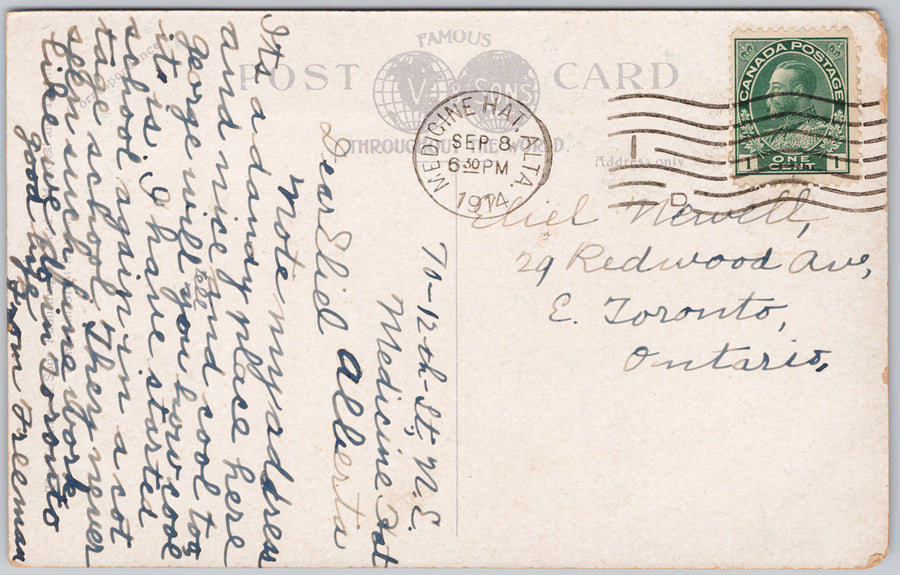 FAMOUS
POST CARD
V & SONS
THROUGHOUT THE WORLD
Correspondence
Address only
MEDICINE HAT, ALTA.
SEP 8
6 30 PM
1914
1
D
CANADA POSTAGE
1 ONE CENT 1
Eliel Newell,
29 Redwood Ave,
E. Toronto,
Ontario,
70-12th-St, N.E.
Medicine Hat
Alberta
Dear Eliel
Note my address
Its a dandy place here
and nice and cool too
George will tell you how cool
it is. I have started
school again in a cot
tage school. They never
seen such fine work
like we do in Toronto
good bye
from Freeman